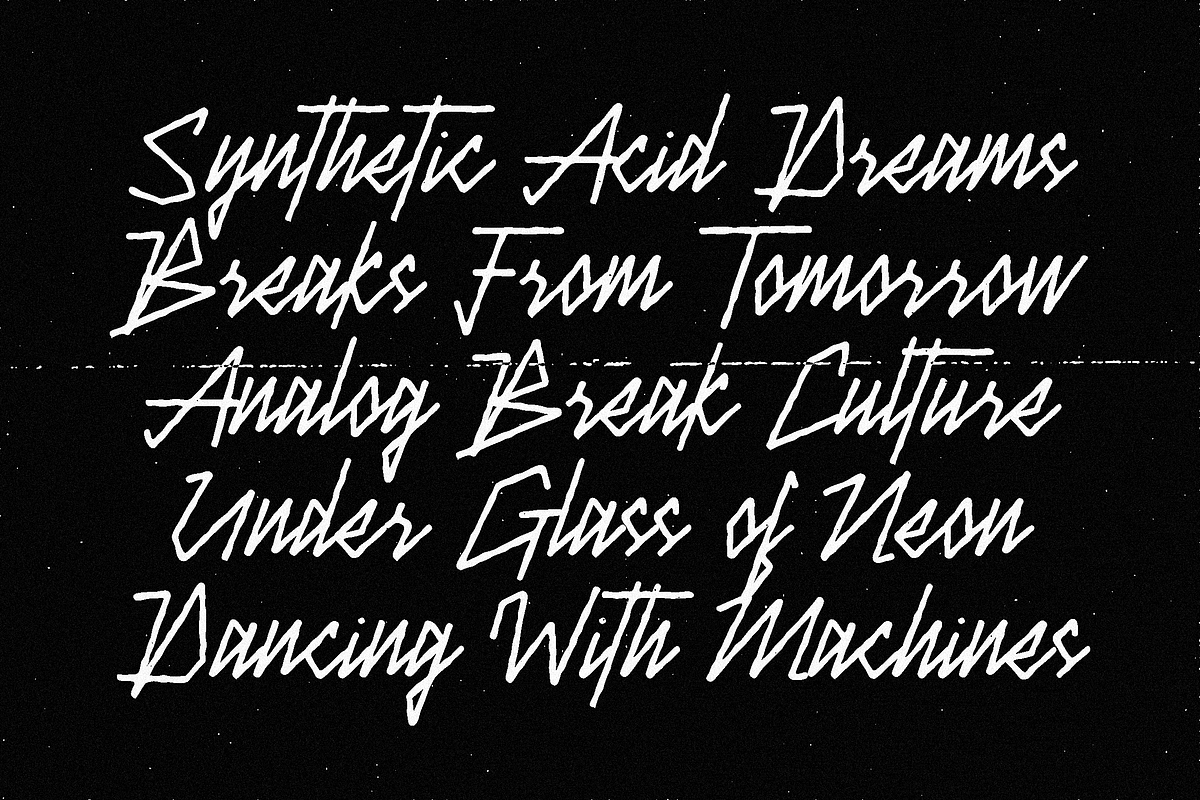 Synthetic Acid Dreams
Breaks From Tomorrow
Analog Break Culture
Under Glass of Neon
Dancing With Machines